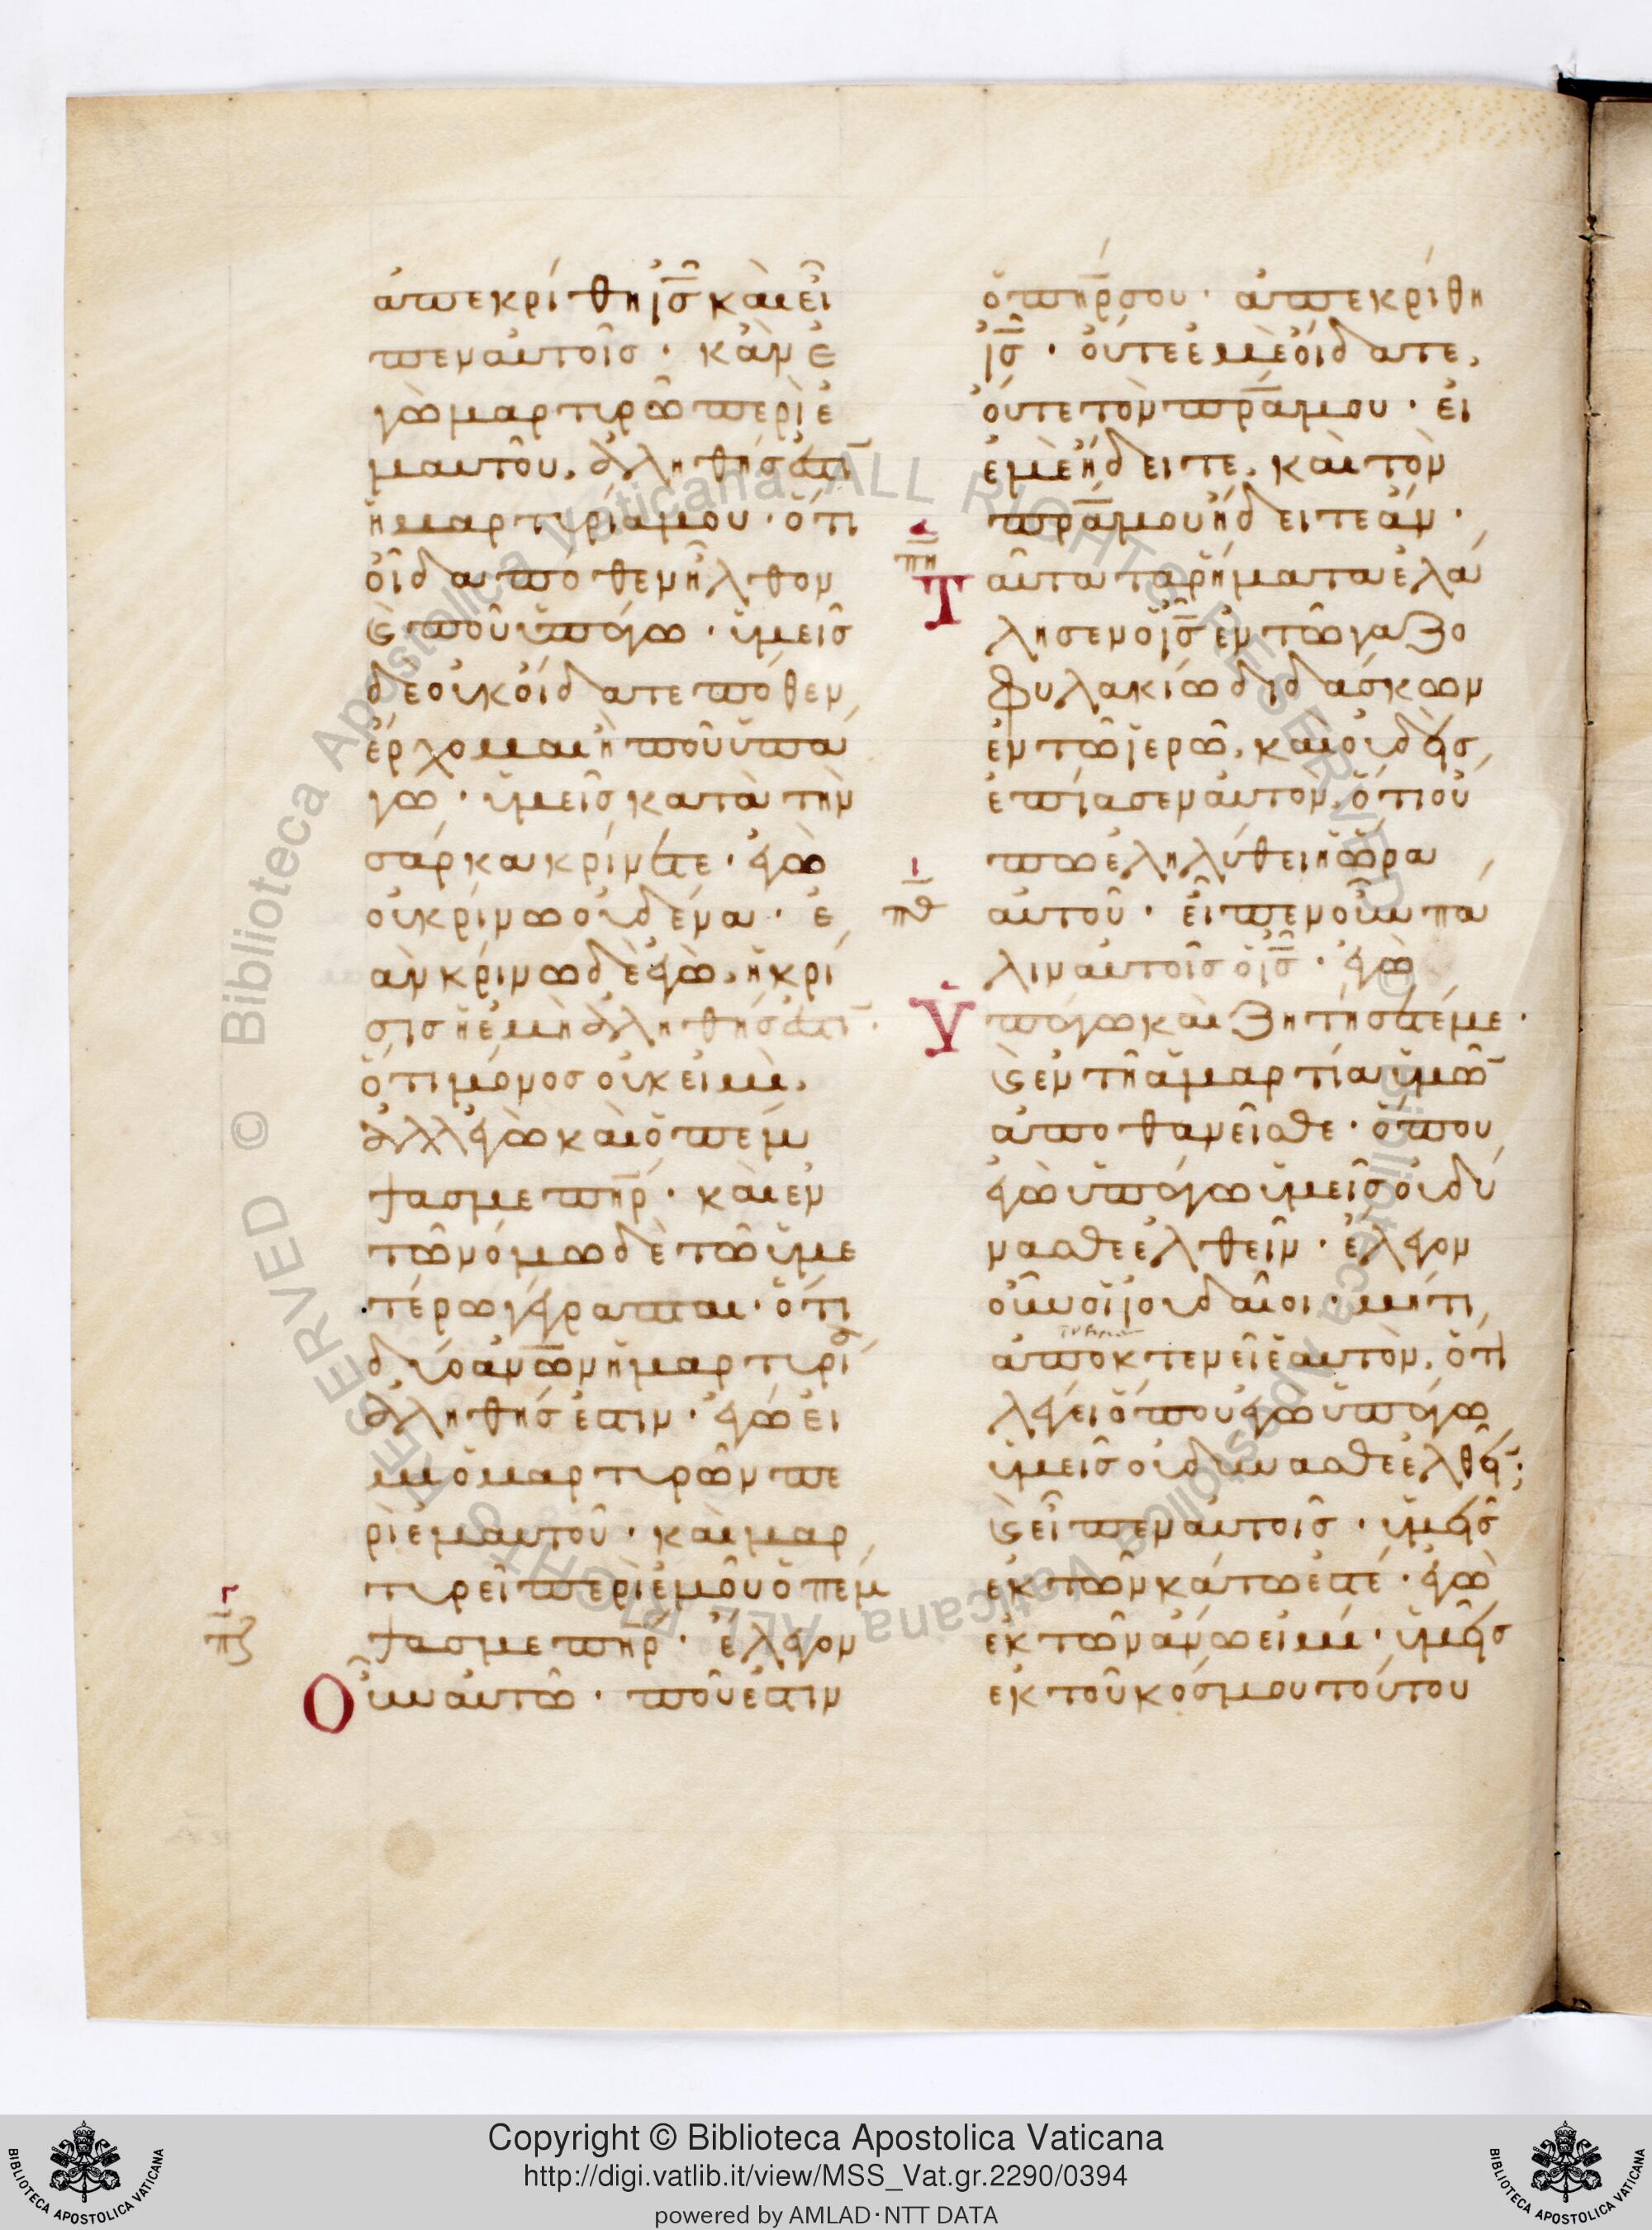 ἀπεκρίθη ἰ̅σ̅ καὶ εἶ
πεν αὐτοῖσ · κἂν ἐ
γὼ μαρτυρῶ περὶ ἐ
μαυτοῦ, ἀληθήσ ἐστι̅
ἡ μαρτυρία μου · ὅτι
οἶδα πόθεν ἦλθον
ϗ ποῦ ὑπάγω · ὑμεῖσ
δὲ οὐκ οἴδατε πόθεν
ἔρχομαι ἢ ποῦ ὑπά
γω · ὑμεῖσ κατὰ τὴν
σάρκα κρίνετε · ἐγὼ
οὐ κρίνω οὐδένα · ἐ
ὰν κρίνω δὲ ἐγὼ, ἡ κρί
σισ ἡ ἐμὴ ἀληθήσ ἐστι̅ ·
ὅτι μόνοσ οὐκ εἰμι,
ἀλλ ἐγὼ καὶ ὁ πέμ
ψασ με π̅η̅ρ̅ · καὶ ἐν
τῶ νόμω δὲ τῶ ὑμε
τέρω γέγραπται · ὅτι
δύο ἀν̅ω̅ν ἡ μαρτυρί
α
ἀληθήσ ἐστιν · ἐγώ εἰ
μι ὁ μαρτυρῶν πε
ρὶ ἐμαυτοῦ · καὶ μαρ
τυρεῖ περὶ ἐμοῦ ὁ πέμ
ψασ με π̅η̅ρ̅ · ἔλεγον
γ
π̅ζ̅
Οὖν αὐτῶ · ποῦ ἐστιν
ὁ π̅η̅ρ̅ σου · ἀπεκρίθη
ἰ̅σ̅ · οὔτε ἐμὲ οἴδατε,
οὔτε τὸν π̅ρ̅α̅ μου · εἰ
ἐμὲ ἤδειτε, καὶ τὸν
π̅ρ̅α̅ μου ἤδειτε ἄν ·
α
π̅η̅
Ταῦτα τὰ ῥήματα ἐλά
λησεν ὁ ἰ̅σ̅ ἐν τῶ γαζο
φυλακίω διδάσκων
ἐν τῶ ἱερῶ, καὶ οὐδεὶσ
ἐπίασεν αὐτὸν, ὅτι οὔ
πω ἐληλύθει ἡ ὥρα
ι
π̅θ̅
αὐτοῦ · εἶπεν οὖν πά
λιν αὐτοῖσ ὁ ἰ̅σ̅ · ἐγὼ
Ὑπάγω καὶ ζητήσετέ με ·
ϗ ἐν τῆ ἁμαρτία ὑμῶ̅
ἀποθανεῖσθε · ὅπου
ἐγὼ ὑπάγω ὑμεῖσ οὐ δύ
νασθε ἐλθεῖν · ἔλεγον
οὖν οἱ ἰουδαῖοι · μήτι
ἀποκτενεῖ ἑαυτὸν, ὅτι
λέγει ὅπου ἐγὼ ὑπάγω
ὑμεῖσ οὐ δύνασθε ἐλθεῖ̅;
ϗ εἶπεν αὐτοῖσ · ὑμεῖσ
ἐκ τῶν κάτω ἐστέ · ἐγὼ
ἐκ τῶν ἄνω εἰμί · ὑμεῖσ
ἐκ τοῦ κόσμου τούτου
Copyright © Biblioteca Apostolica Vaticana
http://digi.vatlib.it/view/MSS_Vat.gr.2290/0394
powered by AMLAD·NTT DATA
BIBLIOTECA APOSTOLICA VATICANA
BIBLIOTECA APOSTOLICA VATICANA